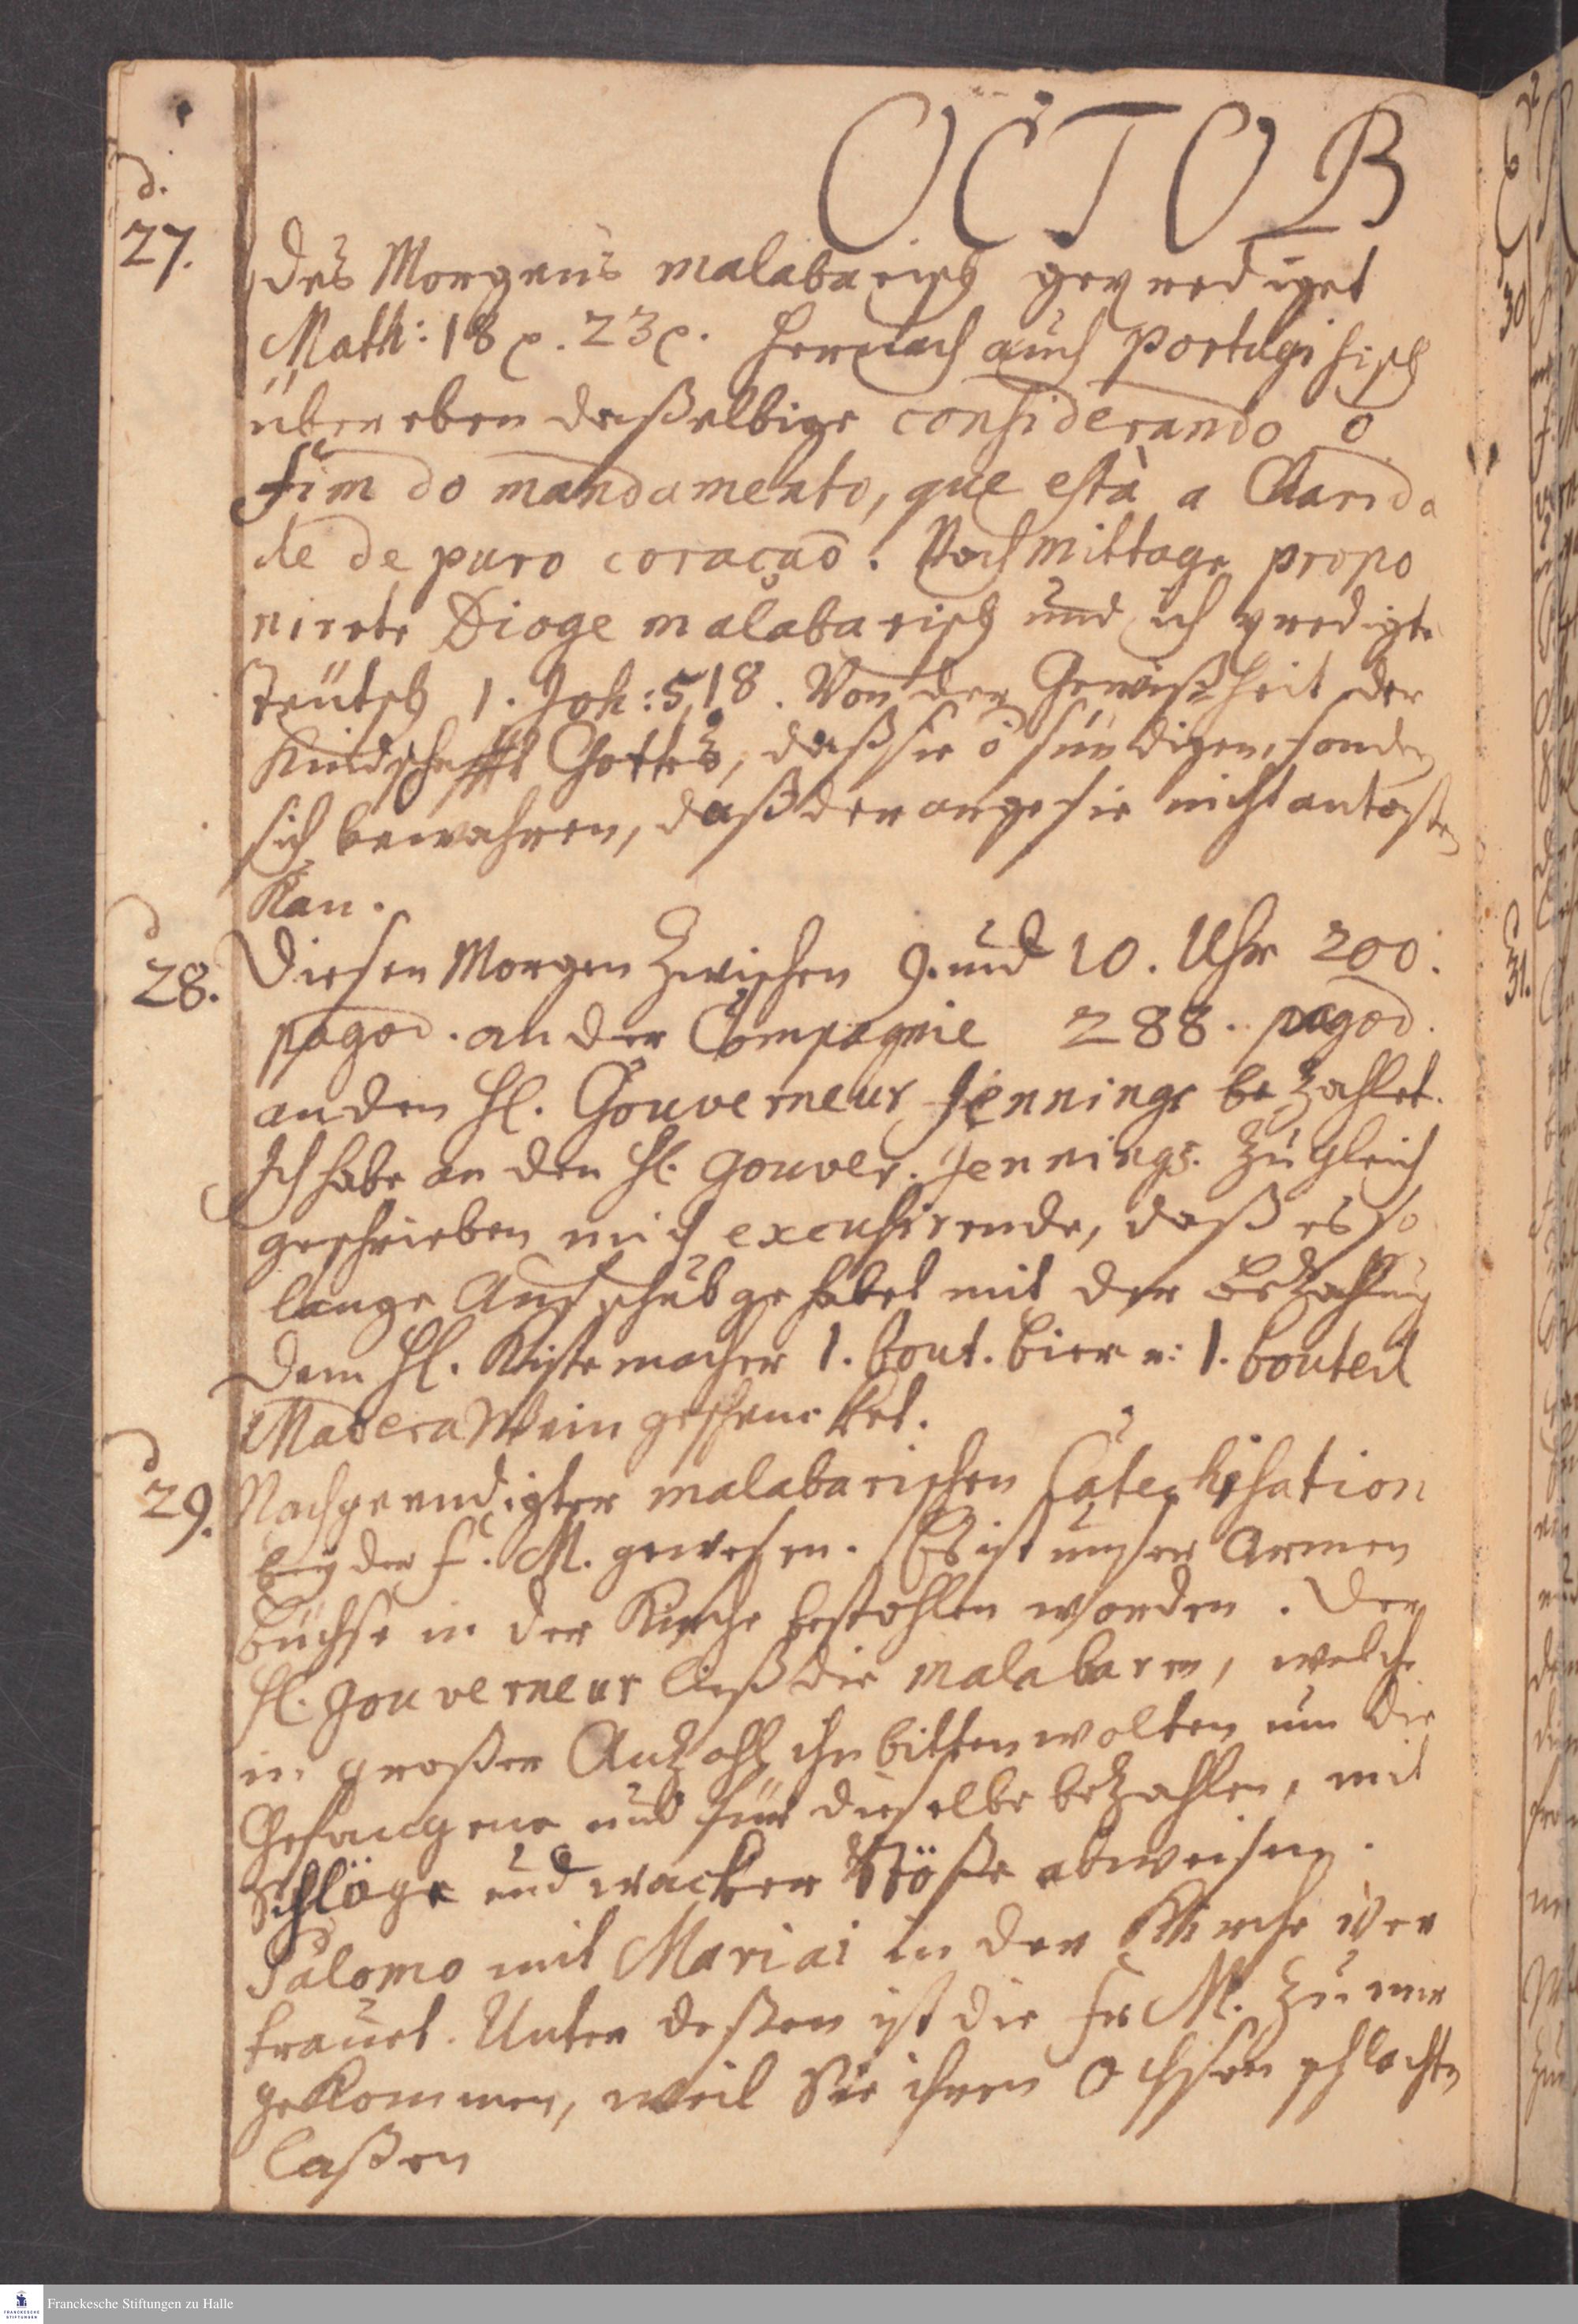 OCTOB
d.
27.
des Morgens malabarisch geprediget
Math: 18 p. 23 p. hernach auch Portugisisch
über eben daßelbige considerando o
fim do mandamento, que està a Charida
de de puro coraçaõ. Nachmittage propo
nirete Dioge malabarisch und ich predigte
teütsch 1. Joh: 5,18. Von der Gewißheit der
Kindschafft Gottes, daß sie õ sündigen, sondern
sich bewahren, daß der arge sie nicht antasten
Kan.
d
28.
Diesen Morgen zwischen 9. und 10. Uhr 200.
pagod. an der Compagnie 288. pagod.
an den H. Gouverneur Jennings bezahlet.
Ich habe an den H. Gouver. Jennings. zugleich
geschrieben mich excusirende, daß es so
lange Aufschub gehabet mit der Bezahlung
Dem H. Kistemacher 1. bout. Bier u: 1. bouteil
Madera Wein geschencket.
d
29.
Nach geendigter malabarischen Catechisation
bey der f. M. gewesen. Es ist unser Armen
büchse in der Kirche bestohlen worden. Der
H. Gouverneur ließ die malabaren, welche
in großer Anzahl ihn bitten wolten um die
Gefangene und für dieselbe bezahlen, mit
Schläge und wacker Stöße abweisen.
Salomo mit Mariai in der Kirche ver
trauet. Unter deßen ist die fr M. zu mir
gekommen, weil Sie ihren Ochsen schlachten
laßen
30
31.
Franckesche Stiftungen zu Halle